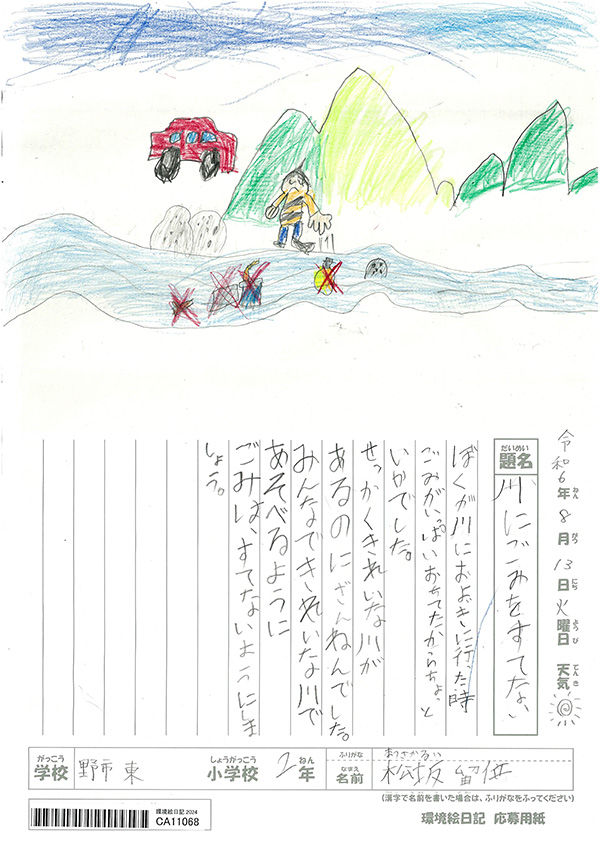 令和6年8月13日火曜日 天気
ねん がつ にち ようび てんき
だいめい
題名 川にごみをすてない
ぼくが川におよぎに行った時
ごみがいっぱいおちてたからちょっと
いやでした。
せっかくきれいな川が
あるのにざんねんでした。
みんなできれいな川で
あそべるように
ごみは、すてないようにしま
しょう。
がっこう しょうがっこう ねん ふりがな
学校 野市東 小学校 2年
なまえ
名前 松坂
(漢字で名前を書いた場合は、ふりがなをふってください)
環境絵日記 2024
CA11068
環境絵日記 応募用紙